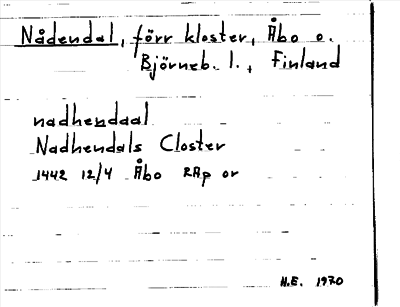 Nådendal, förr kloster, Åbo o.
Björneb. l., Finland
nadhendaal
Nadhendals Closter
1442 12/4 Åbo RAp or
H.E. 1970